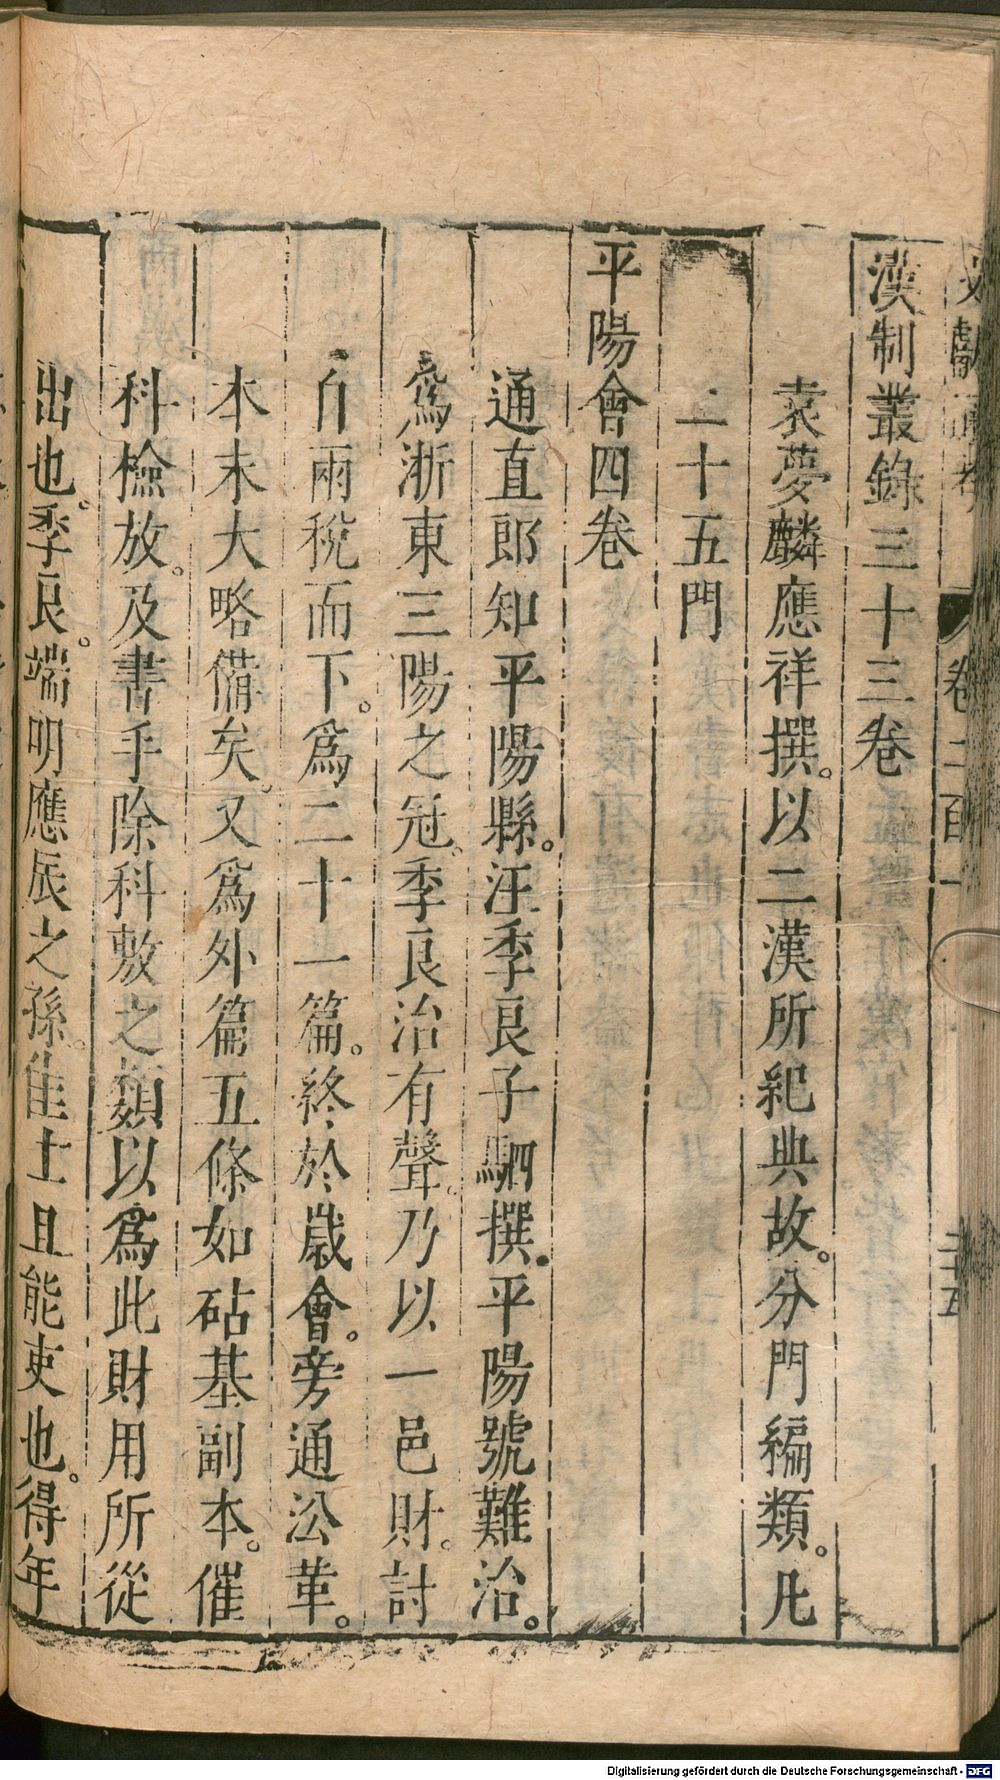 文獻通考 卷二百一 二十五
漢制叢錄三十三卷
袁夢麟應祥撰。以二漢所紀典故。分門編類。凡
二十五門
平陽會四卷
通直郎知平陽縣。汪季良子駟撰。平陽號難治。
爲浙東三陽之冠。季良治有聲。乃以一邑財。討
自兩稅而下。爲二十一篇。終於歲會。旁通公革。
本末大略備矣。又爲外篇五條如砧基副本。催
科檢放。及書手除科敷之類以爲此財用所從
出也。季良。端明應辰之孫。佳士且能吏也。得年
Digitalisierung gefördert durch die Deutsche Forschungsgemeinschaft - DFG